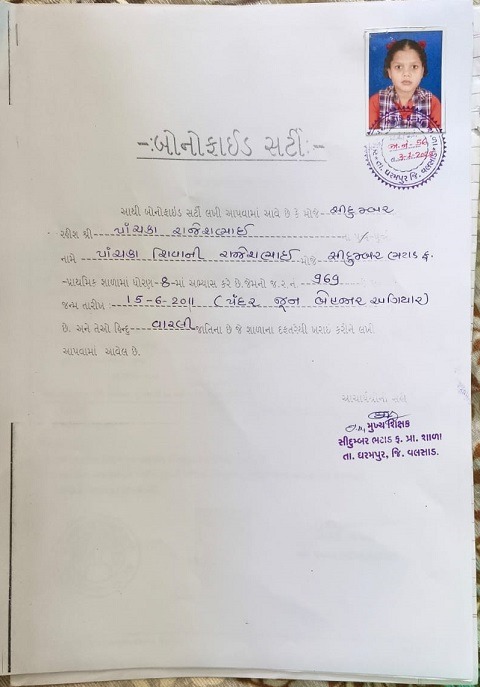 અ.નં- 56
તા. ધરમપુર જિ. વલસાડ
-:બોનોફાઈડ સર્ટી:-
આથી બોનોફાઈડ સર્ટી લખી આપવામાં આવે છે કે મોજે- સીદુમ્બર
રહીશ શ્રી પાંચકા રાજેશભાઈ
નામે પાંચકા શિવાની રાજેશભાઈ મોજે સીદુમ્બર ભટાડ ફ.
-પ્રાથમિક શાળામાં ધોરણ-8-માં અભ્યાસ કરે છે.જેમનો જ.ર.નં. 969
જન્મ તારીખ: 15-6-2011 (પંદર જૂન બેહજાર અગિયાર)
છે. અને તેઓ હિન્દુ વારલી જાતિના છે જે શાળાના દફતરેથી ખરાઈ કરીને લખી
આપવામાં આવેલ છે.
આચાર્યશ્રીની સહી
મુખ્ય શિક્ષક
સીદુમ્બર ભટાડ ફ. પ્રા. શાળા
તા. ધરમપુર, જિ. વલસાડ.